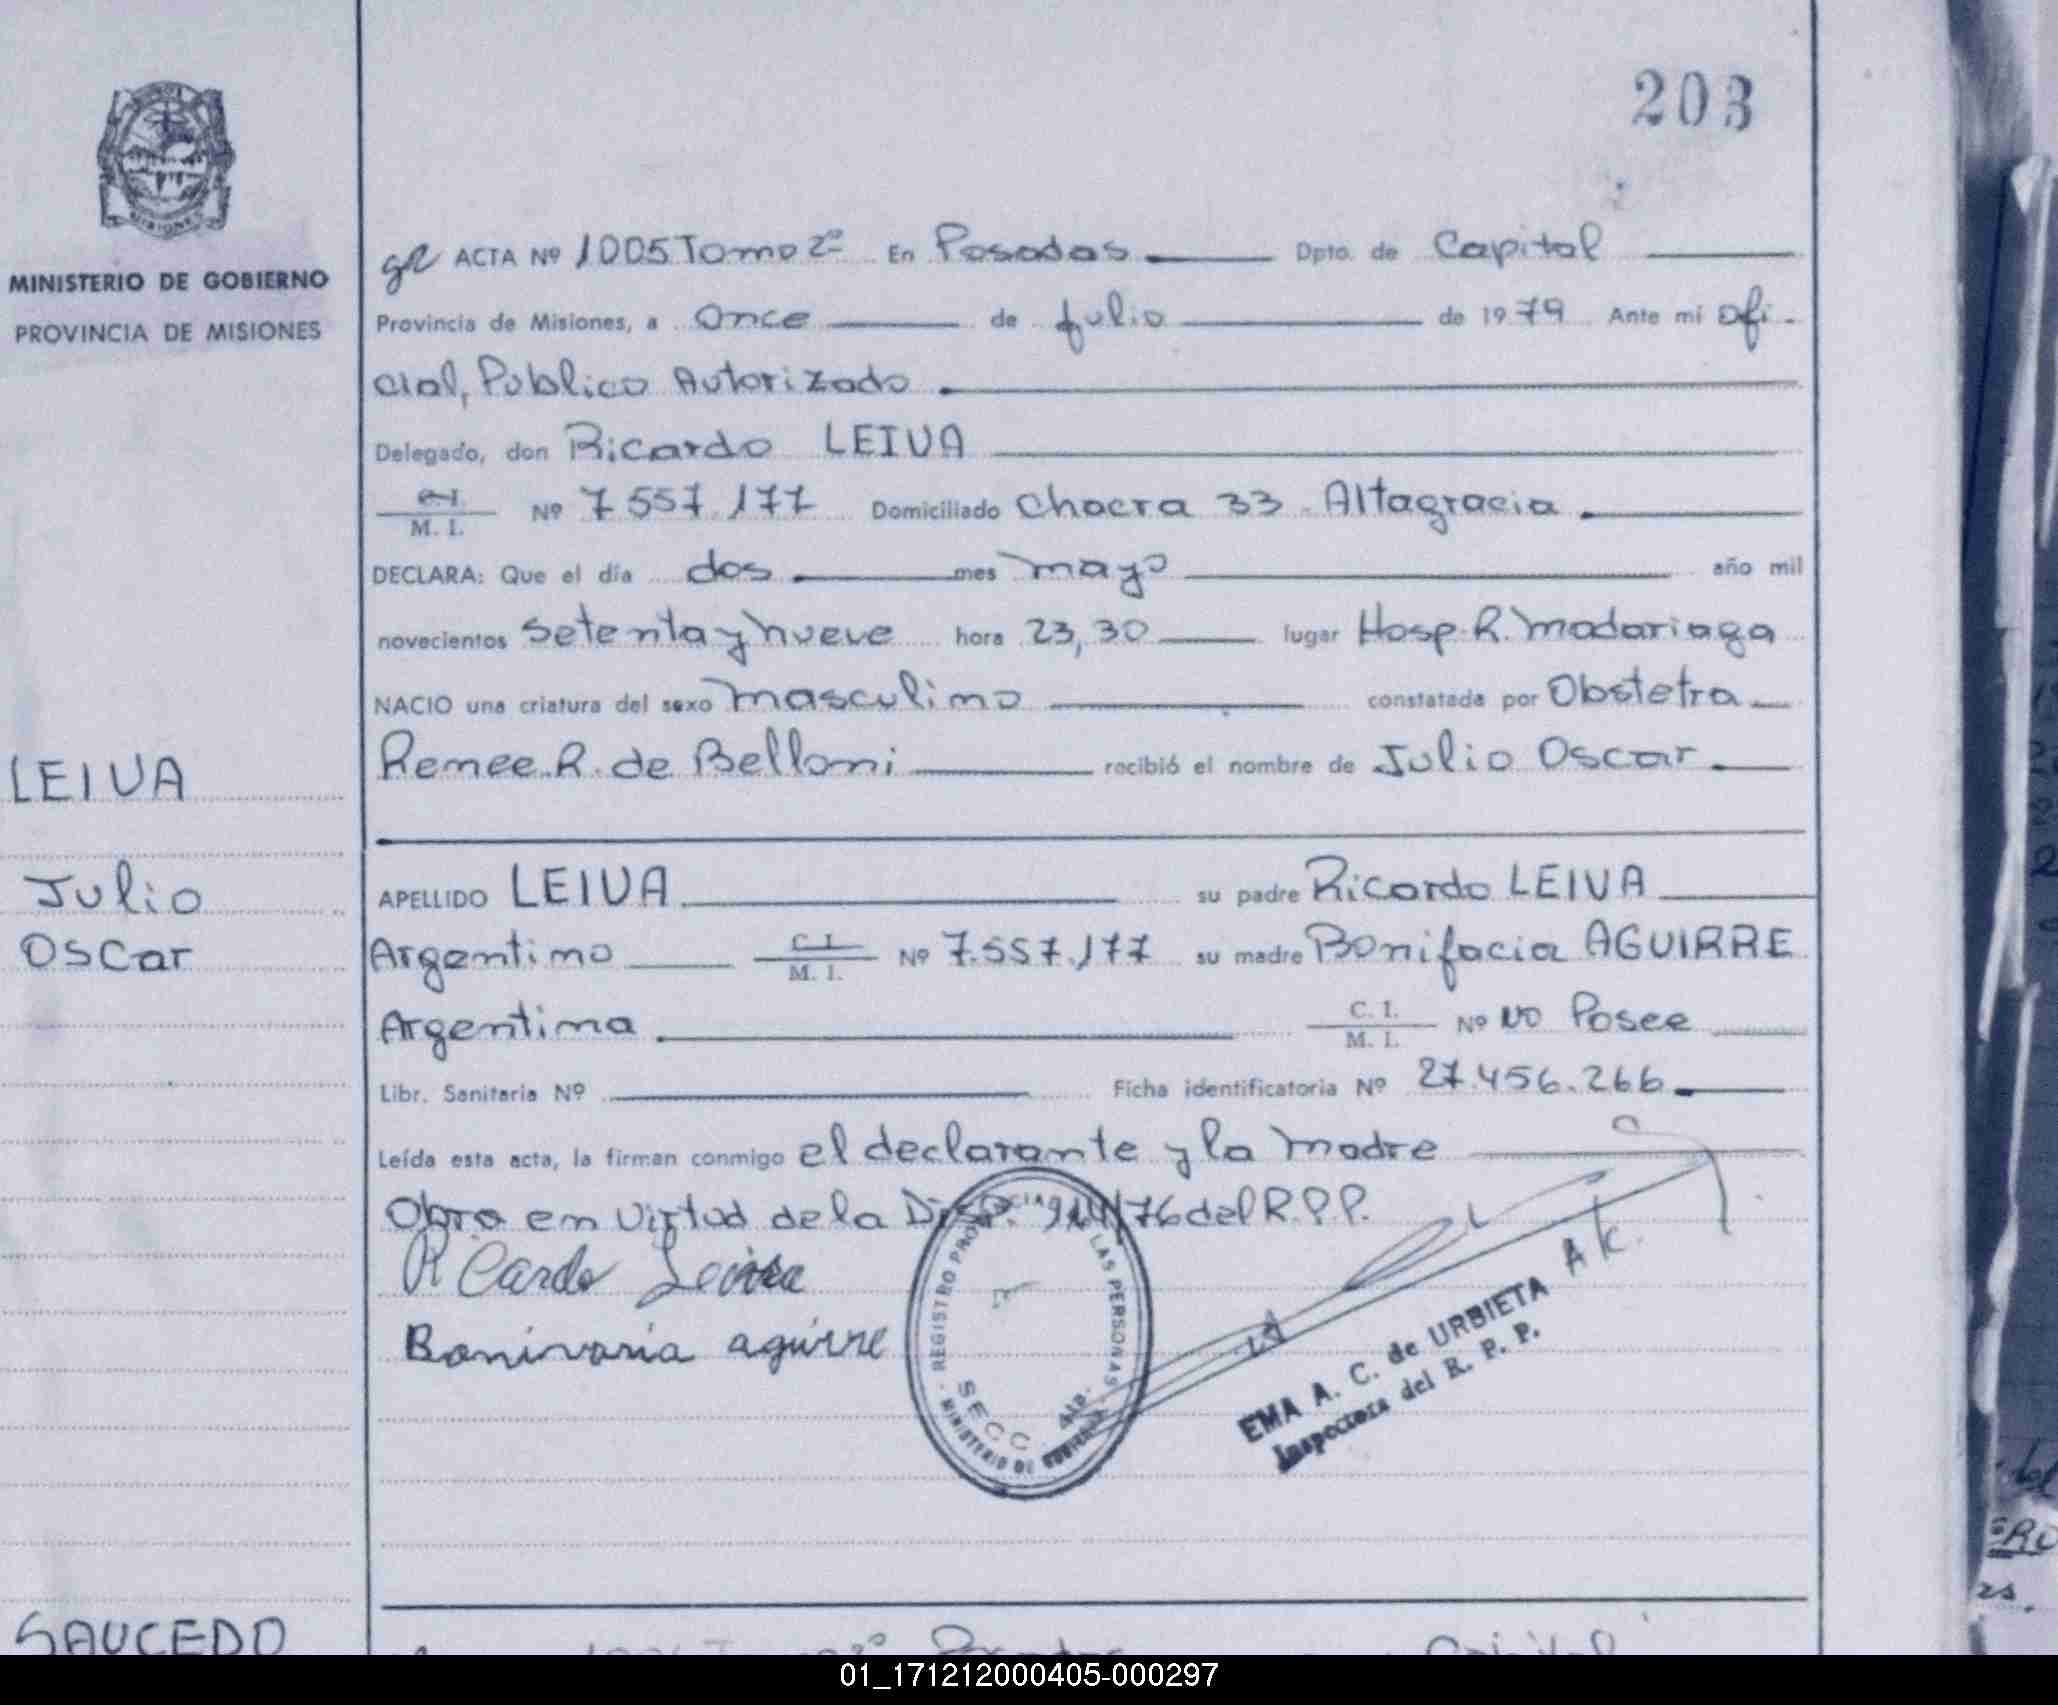 203
MINISTERIO DE GOBIERNO
PROVINCIA DE MISIONES
ACTA Nº 1005 Tomo 2º En Posadas Dpto. de Capital
Provincia de Misiones, a Once de Julio de 1979 Ante mí Ofi-
cial, Publico Autorizado
Delegado, don Ricardo LEIVA
C. I.
M. I. Nº 7.557.177 Domiciliado Chacra 33 - Altagracia
DECLARA: Que el día dos mes mayo año mil
novecientos setenta y nueve hora 23,30 lugar Hosp. R. Madariaga
NACIO una criatura del sexo masculino constatada por Obstetra
Renee R. de Belloni recibió el nombre de Julio Oscar
LEIVA
Julio
Oscar
APELLIDO LEIVA su padre Ricardo LEIVA
Argentino C. I. M. I. Nº 7.557.177 su madre Bonifacia AGUIRRE
Argentina C. I. M. I. Nº NO Posee
Libr. Sanitaria Nº Ficha identificatoria Nº 27.456.266
Leída esta acta, la firman conmigo el declarante y la madre
Obro en virtud de la Disp. /76 del R.P.P.
Ricardo Leiva
Bonivaria aguirre
REGISTRO PROVINCIAL DE LAS PERSONAS
SECC. 4ta.
MINISTERIO DE GOBIERNO
EMA A. C. de URBIETA
Inspectora del R. P. P.
SAUCEDO
01_171212000405-000297